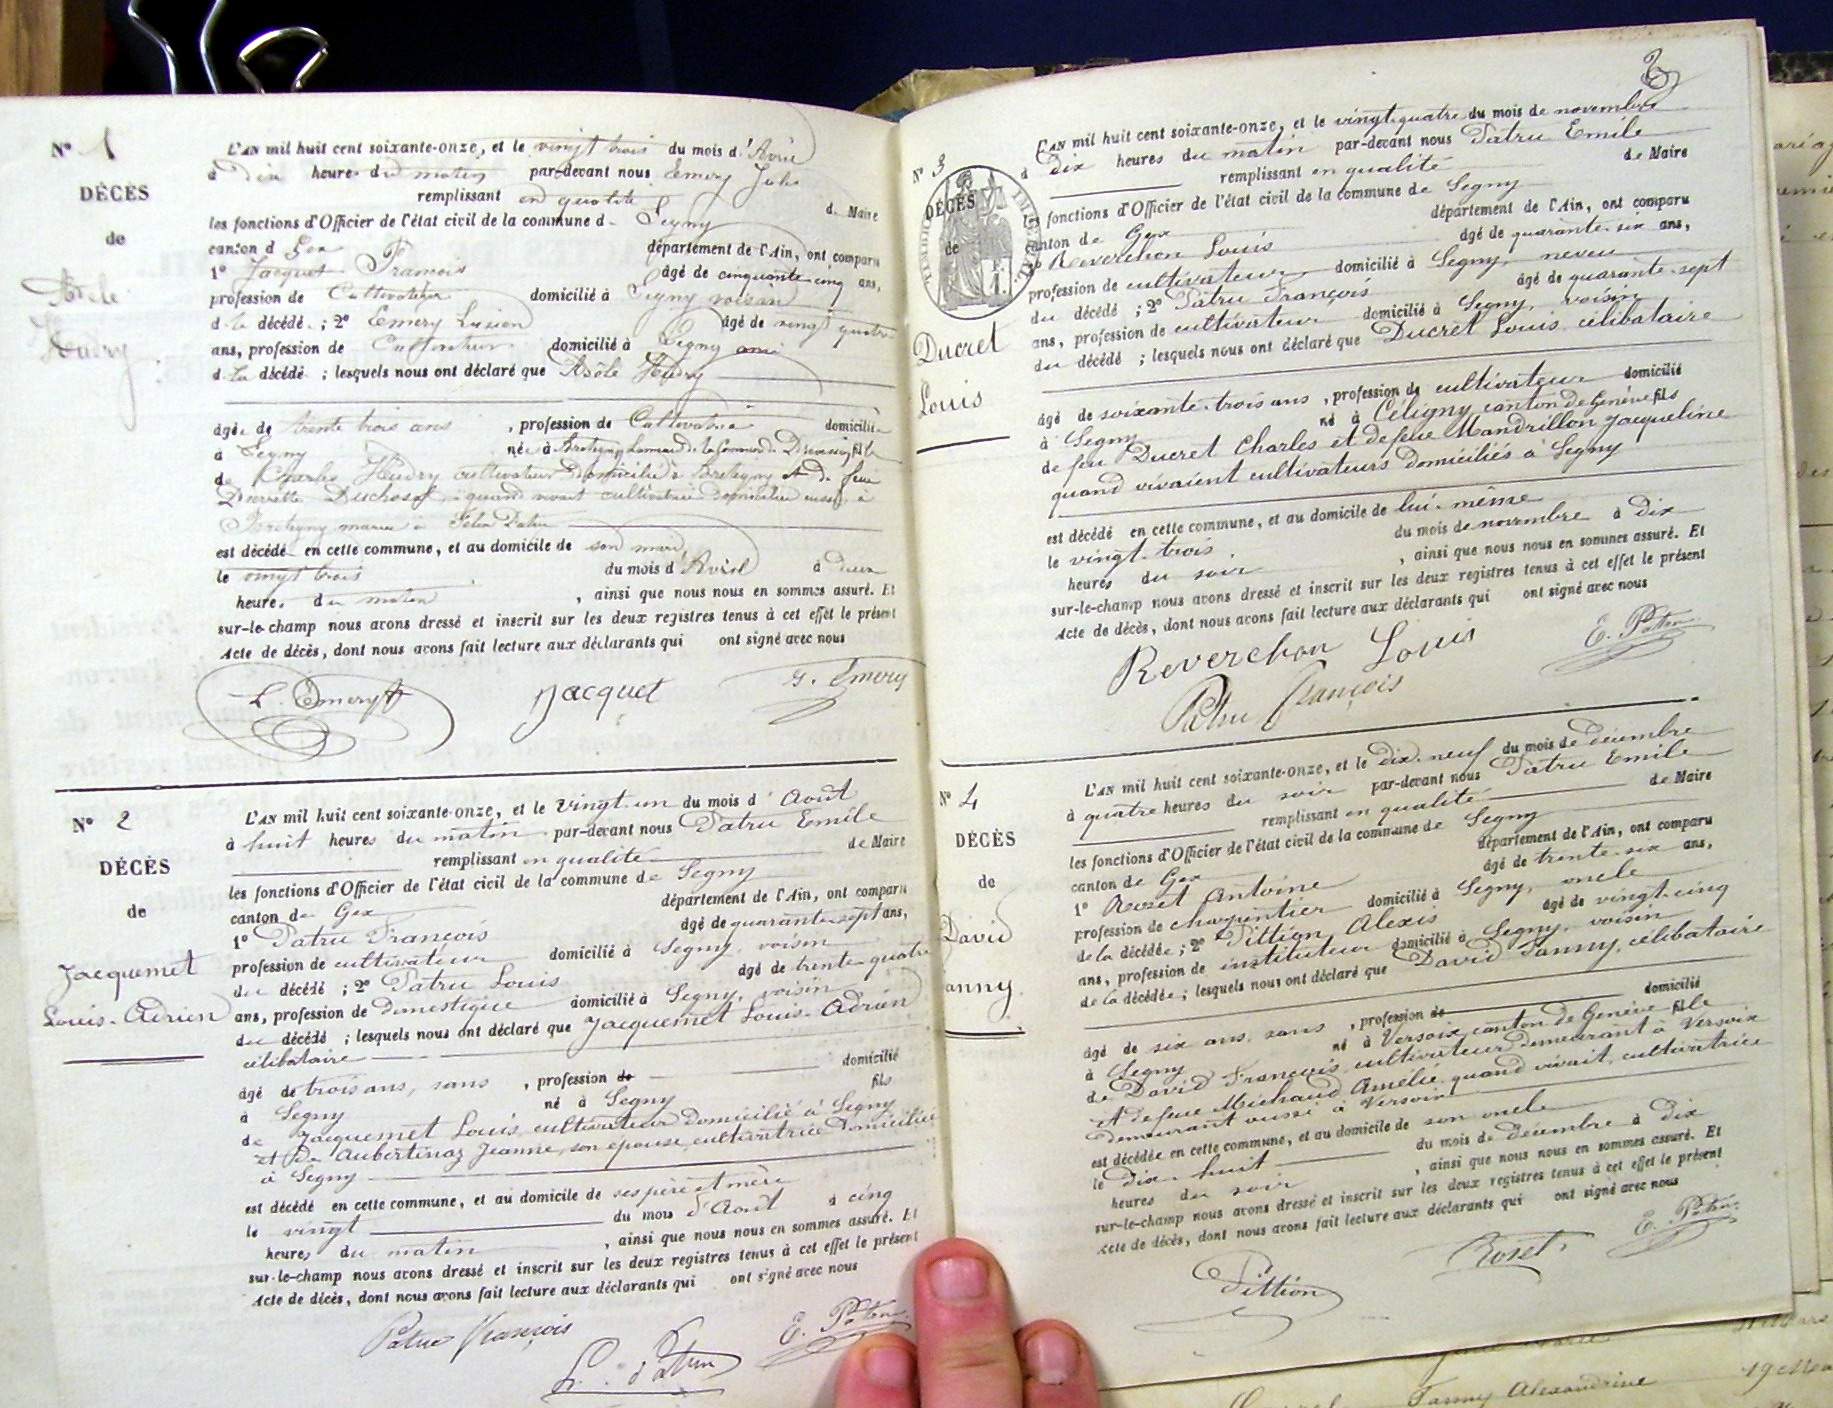 Nº 1
DÉCÈS
de
Adèle
Heudry
L'AN mil huit cent soixante-onze, et le vingt trois du mois d'Avril
à Dix heures du matin par-devant nous Emery Jules
remplissant en qualité de Maire
les fonctions d'Officier de l'état civil de la commune d Segny
canton d Gex département de l'Ain, ont comparu
1º Jacquet François âgé de cinquante cinq ans,
profession de Cultivateur domicilié à Segny voisin
d la décédé ; 2º Emery Lucien âgé de vingt quatre
ans, profession de Cultivateur domicilié à Segny ami
d la décédé ; lesquels nous ont déclaré que Adèle Heudry
âgée de trente trois ans , profession de Cultivatrice domiciliée
à Segny née à fille
de Charles Heudry cultivateur Domicilié à Bretigny et de feue
Duchosal, quand vivait cultivatrice domiciliée aussi à
Bretigny mariée à Félix Patru
est décédé en cette commune, et au domicile de son mari,
le vingt trois du mois d'Avril à deux
heures du matin , ainsi que nous nous en sommes assuré. Et
sur-le-champ nous avons dressé et inscrit sur les deux registres tenus à cet effet le présent
Acte de décès, dont nous avons fait lecture aux déclarants qui ont signé avec nous
L. Emery Jacquet J. Emery
Nº 2
DÉCÈS
de
Jacquemet
Louis-Adrien
L'AN mil huit cent soixante-onze, et le vingt-un du mois d'Août
à huit heures du matin par-devant nous Patru Emile
remplissant en qualité de Maire
les fonctions d'Officier de l'état civil de la commune de Segny
canton de Gex département de l'Ain, ont comparu
1º Patru François âgé de quarante-sept ans,
profession de cultivateur domicilié à Segny, voisin
du décédé ; 2º Patru Louis âgé de trente-quatre
ans, profession de domestique domicilié à Segny, voisin
du décédé ; lesquels nous ont déclaré que Jacquemet Louis-Adrien
célibataire
âgé de trois ans, sans , profession de domicilié
à Segny né à Segny fils
de Jacquemet Louis, cultivateur Domicilié à Segny
et De Aubertinaz Jeanne, son épouse, cultivatrice Domiciliée
à Segny
est décédé en cette commune, et au domicile de ses père et mère
le vingt du mois d'Août à cinq
heures du matin , ainsi que nous nous en sommes assuré. Et
sur-le-champ nous avons dressé et inscrit sur les deux registres tenus à cet effet le présent
Acte de décès, dont nous avons fait lecture aux déclarants qui ont signé avec nous
Patru François L. Patru E. Patru
Nº 3
DÉCÈS
de
Ducret
Louis
L'AN mil huit cent soixante-onze, et le vingt-quatre du mois de novembre
à dix heures du matin par-devant nous Patru Emile
remplissant en qualité de Maire
les fonctions d'Officier de l'état civil de la commune de Segny
canton de Gex département de l'Ain, ont comparu
1º Reverchon Louis âgé de quarante-six ans,
profession de cultivateur domicilié à Segny, neveu
du décédé ; 2º Patru François âgé de quarante-sept
ans, profession de cultivateur domicilié à Segny, voisin
du décédé ; lesquels nous ont déclaré que Ducret Louis, célibataire
âgé de soixante-trois ans , profession de cultivateur domicilié
à Segny né à Céligny, canton de Genève fils
de feu Ducret Charles et de feue Mandrillon Jacqueline
quand vivaient cultivateurs domiciliés à Segny
est décédé en cette commune, et au domicile de lui-même
le vingt-trois du mois de novembre à dix
heures du soir , ainsi que nous nous en sommes assuré. Et
sur-le-champ nous avons dressé et inscrit sur les deux registres tenus à cet effet le présent
Acte de décès, dont nous avons fait lecture aux déclarants qui ont signé avec nous
Reverchon Louis E. Patru
Patru François
Nº 4
DÉCÈS
de
David
anny
L'AN mil huit cent soixante-onze, et le dix-neuf du mois de décembre
à quatre heures du soir par-devant nous Patru Emile
remplissant en qualité de Maire
les fonctions d'Officier de l'état civil de la commune de Segny
canton de Gex département de l'Ain, ont comparu
1º Roset Antoine âgé de trente-six ans,
profession de charpentier domicilié à Segny, oncle
de la décédée ; 2º Pittion Alexis âgé de vingt-cinq
ans, profession de instituteur domicilié à Segny, voisin
de la décédée ; lesquels nous ont déclaré que David Fanny, célibataire
âgé de six ans, sans , profession de domicilié
à Segny né à Versoix canton de Genève fille
de David François, cultivateur demeurant à Versoix
et de feue Michaud Amélie, quand vivait, cultivatrice
demeurant aussi à Versoix
est décédée en cette commune, et au domicile de son oncle
le dix-huit du mois de décembre à Dix
heures du soir , ainsi que nous nous en sommes assuré. Et
sur-le-champ nous avons dressé et inscrit sur les deux registres tenus à cet effet le présent
Acte de décès, dont nous avons fait lecture aux déclarants qui ont signé avec nous
Pittion Roset E. Patru
Fanny Alexandrine 19 Mai